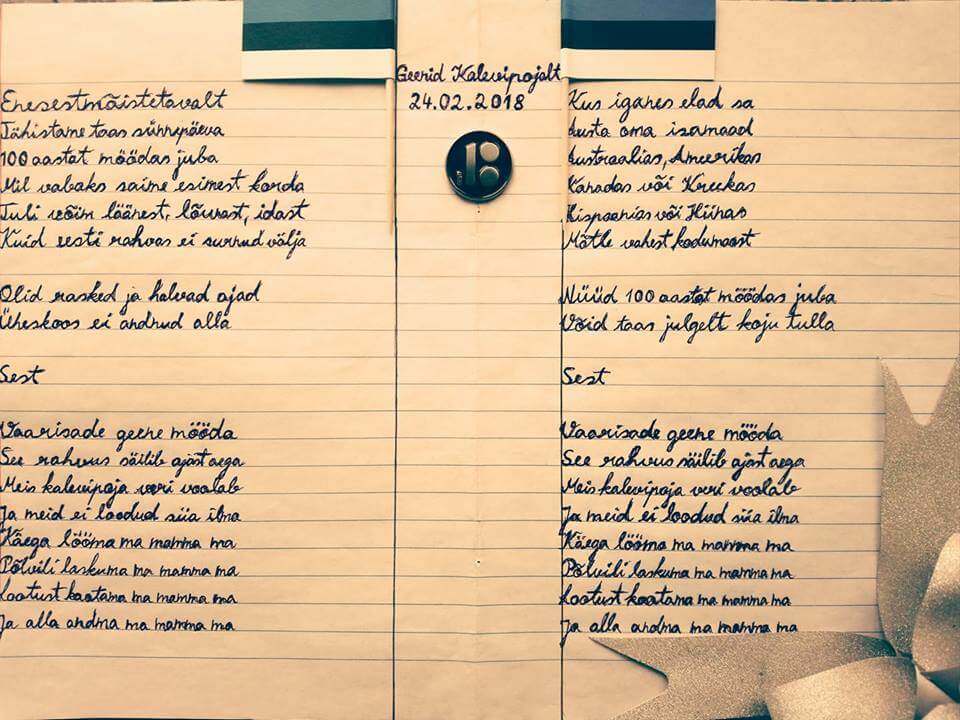 Geenid Kalevipojalt
24.02.2018
Enesestmõistetavalt
Tähistame taas sünnipäeva
100 aastat möödas juba
Mil vabaks saime esimest korda
Tuli võim läänest, lõunast, idast
Kuid eesti rahvas ei surnud välja
Olid rasked ja halvad ajad
Üheskoos ei andnud alla
Sest
Vaarisade geene mööda
See rahvus säilib ajast aega
Meis kalevipoja veri voolab
Ja meid ei loodud siia ilma
Käega lööma ma mamma ma
Põlvili laskuma ma mamma ma
Lootust kaotama ma mamma ma
Ja alla andma ma mamma ma
Kus iganes elad sa
Austa oma isamaad
Austraalias, Ameerikas
Kanadas või Kreekas
Hispaanias või Hiinas
Mõtle vahest kodumaast
Nüüd 100 aastat möödas juba
Võid taas julgelt koju tulla
Sest
Vaarisade geene mööda
See rahvus säilib ajast aega
Meis kalevipoja veri voolab
Ja meid ei loodud siia ilma
Käega lööma ma mamma ma
Põlvili laskuma ma mamma ma
Lootust kaotama ma mamma ma
Ja alla andma ma mamma ma